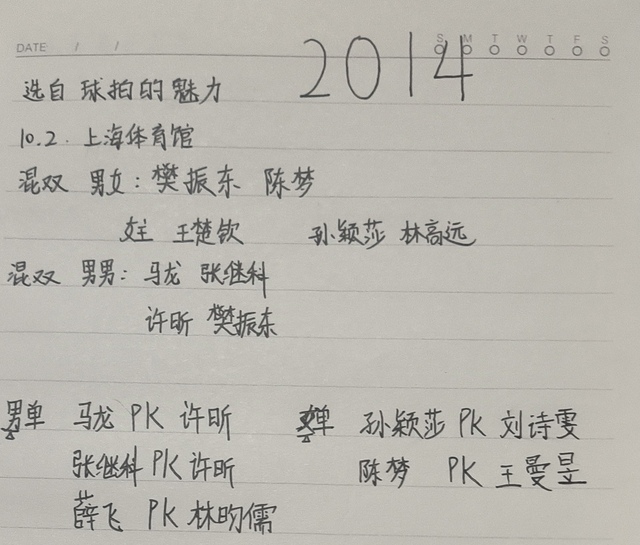 DATE / / S M T W T F S
2014
选自 球拍的魅力
10.2. 上海体育馆
混双 男女：樊振东 陈梦
王楚钦 孙颖莎 林高远
混双 男男：马龙 张继科
许昕 樊振东
男单 马龙 PK 许昕 女单 孙颖莎 PK 刘诗雯
张继科 PK 许昕 陈梦 PK 王曼昱
薛飞 PK 林昀儒